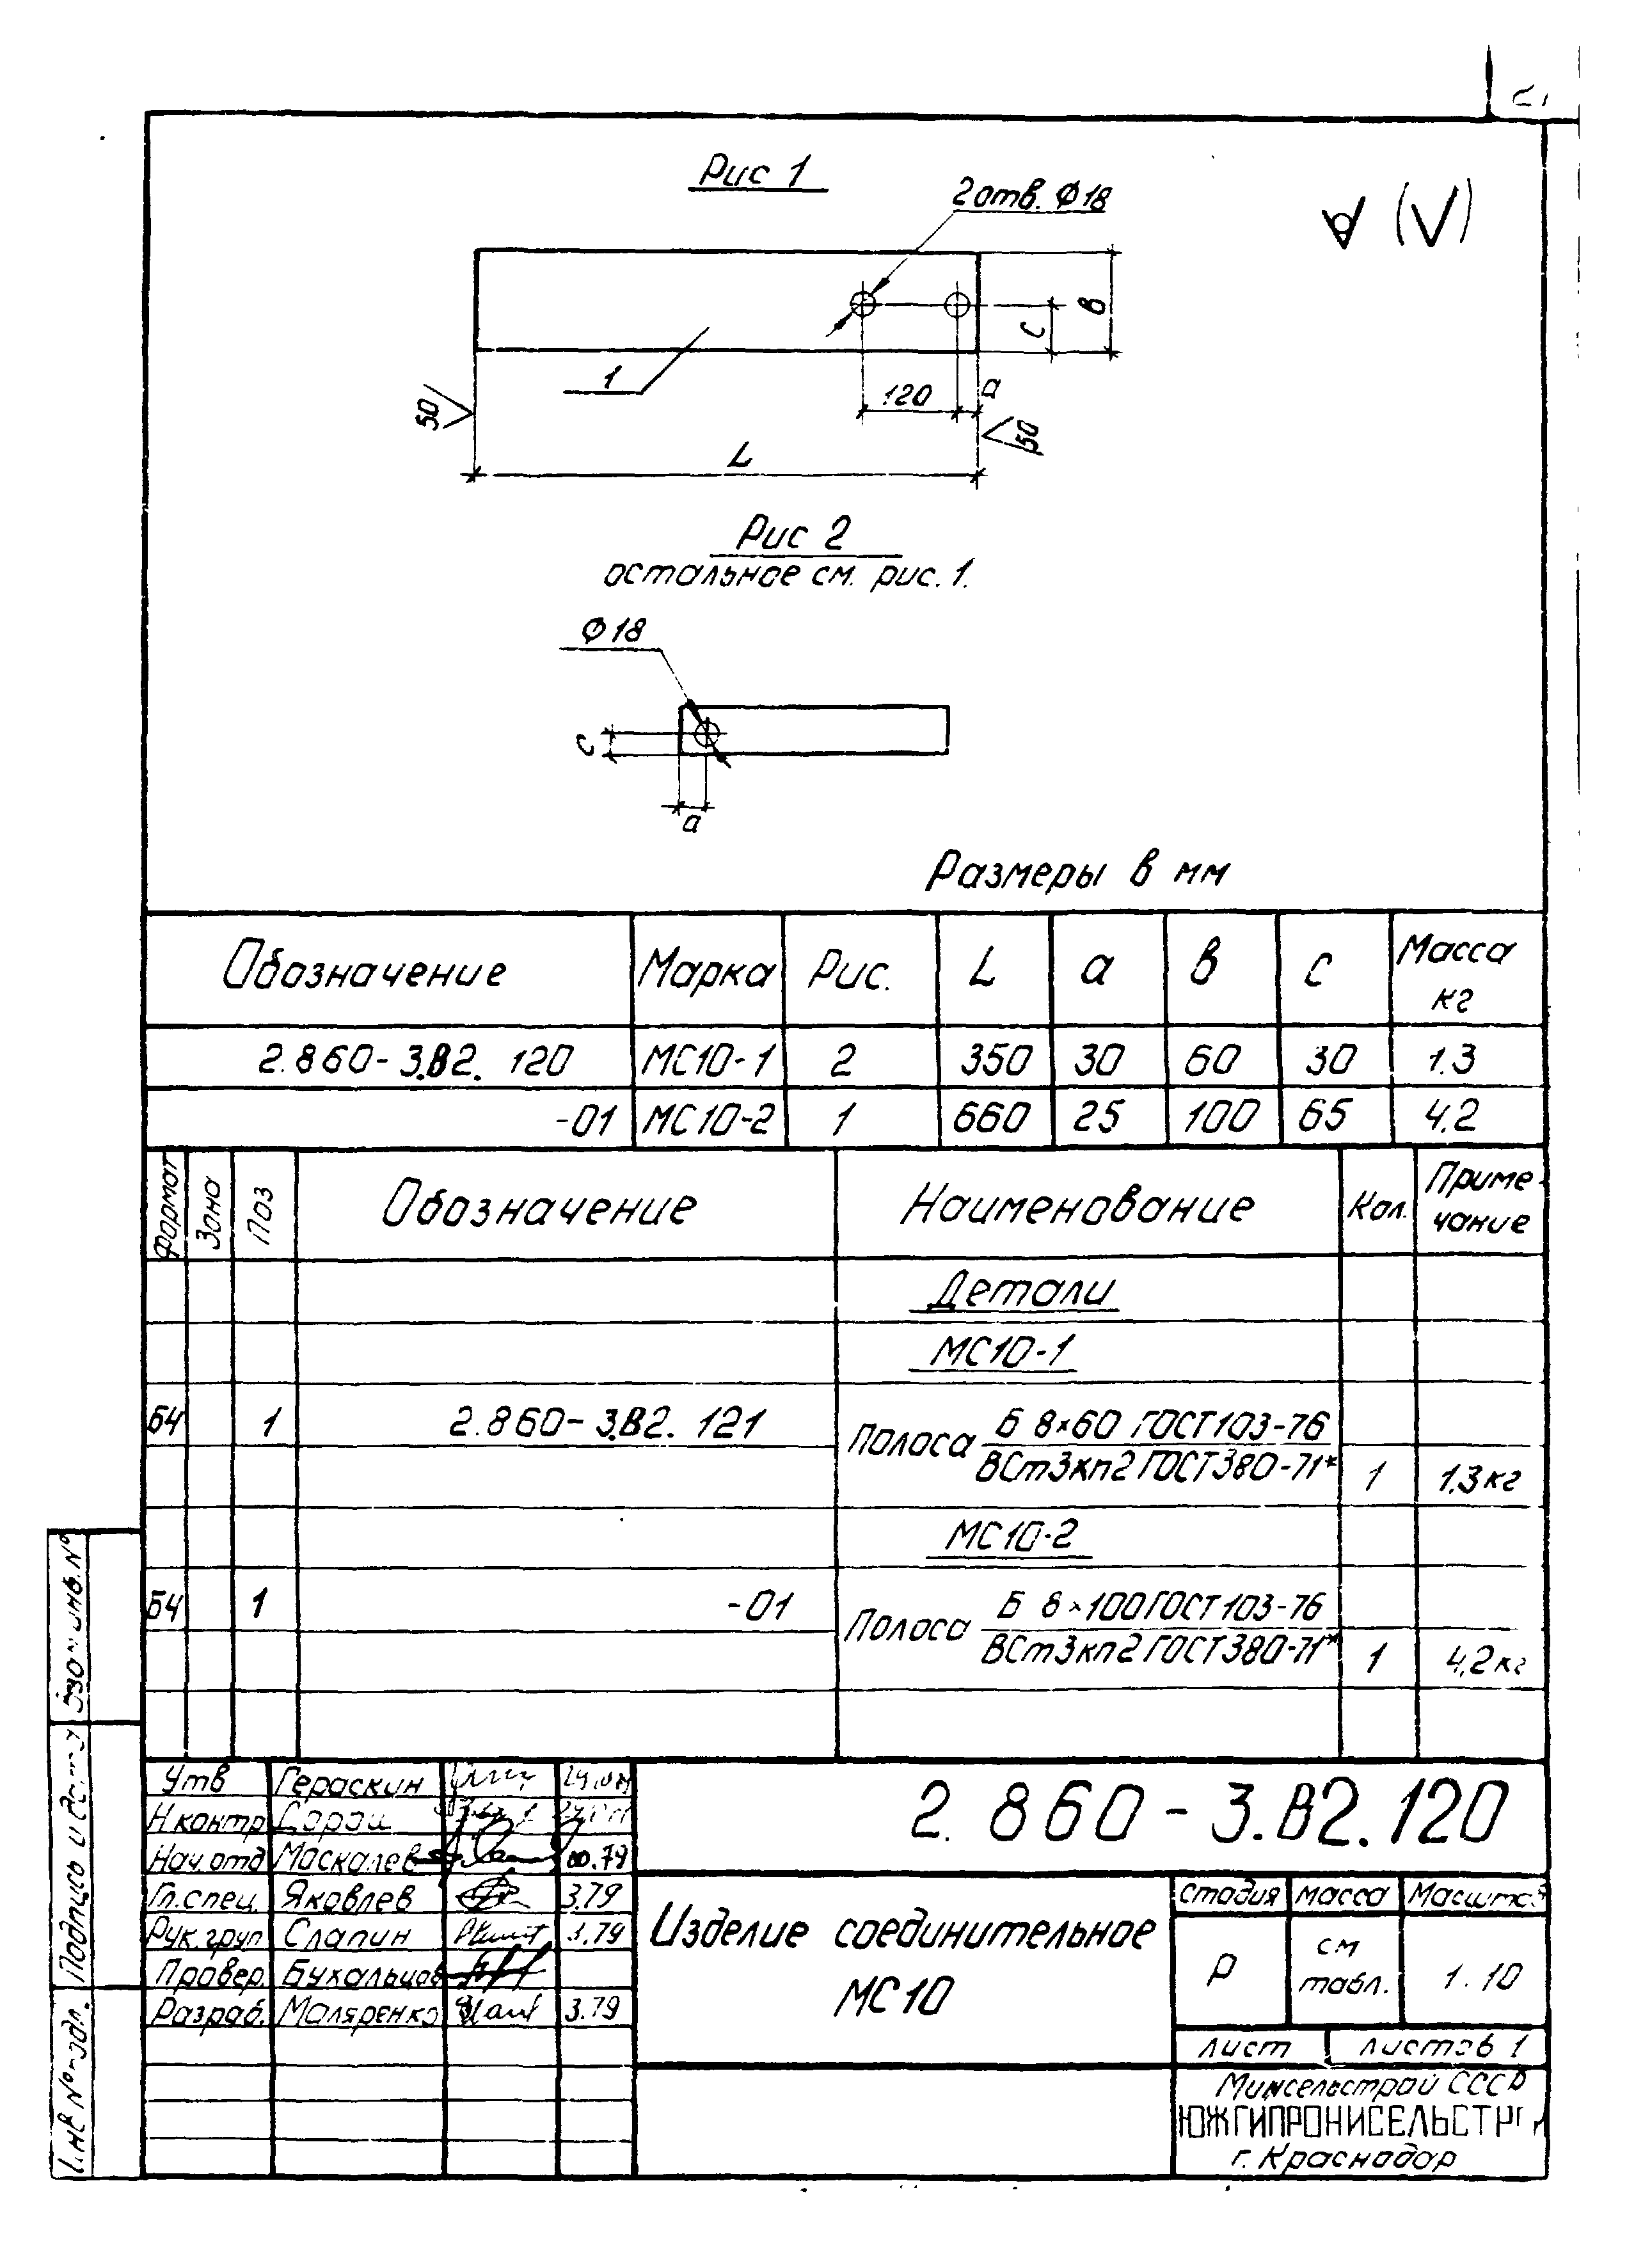 Рис 1
2 отв. Ф18
в
с
1
120
а
50
50
L
Рис 2
остальное см. рис. 1.
Ф18
с
а
Размеры в мм
Обозначение Марка Рис. L а в с Масса кг
2.860-3.В2. 120 МС10-1 2 350 30 60 30 1.3
-01 МС10-2 1 660 25 100 65 4.2
Формат Зона Поз Обозначение Наименование Кол. Приме-
чание
Детали
МС10-1
Б4 1 2.860-3.В2. 121 Полоса Б 8×60 ГОСТ103-76
ВСт3кп2 ГОСТ380-71* 1 1.3кг
МС10-2
Б4 1 -01 Полоса Б 8×100 ГОСТ103-76
ВСт3кп2 ГОСТ380-71* 1 4,2кг
Утв Гераскин
Н контр
Нач. отд Москалев
Гл. спец. Яковлев 3.79
Рук. груп Слапин 3.79
Провер. Бухальцов
Разраб. Маляренко 3.79
2.860-3.В2.120
Изделие соединительное
МС10
стадия масса Масштаб
Р см
табл. 1. 10
лист листов 1
Минсельстрой СССР
ЮЖГИПРОНИСЕЛЬСТР
г. Краснодар
инв. №
Подпись и